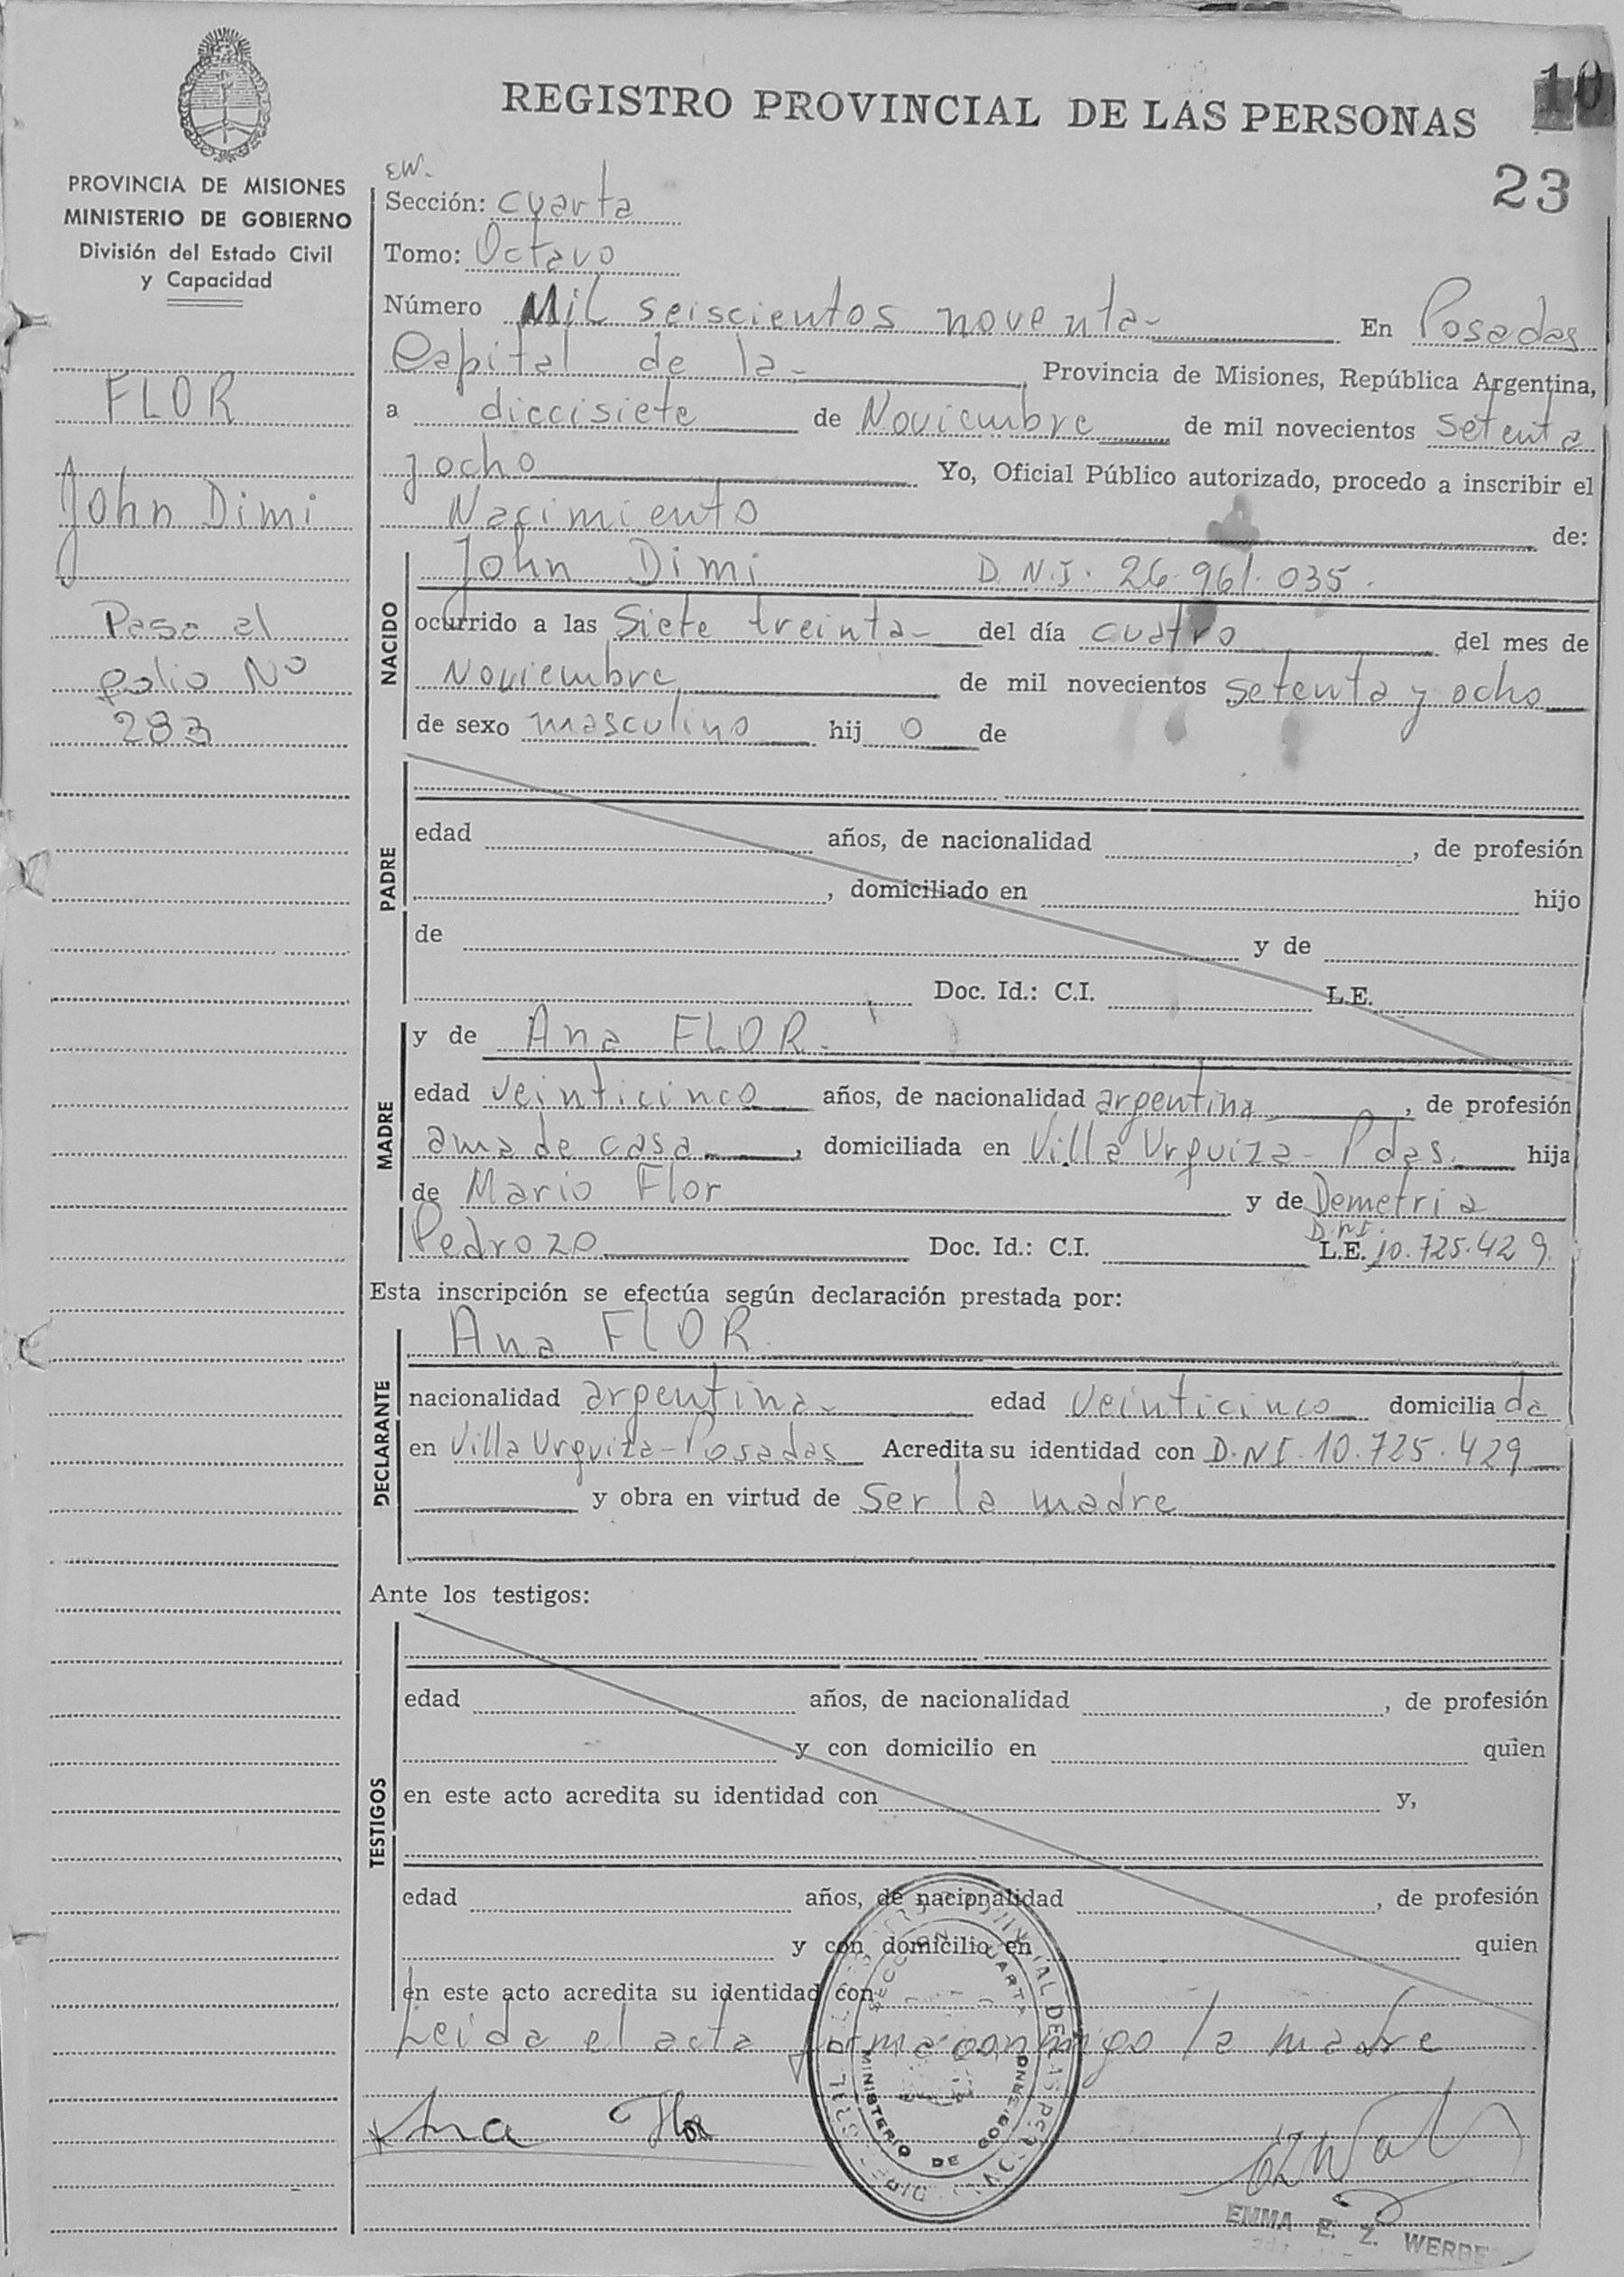 10
REGISTRO PROVINCIAL DE LAS PERSONAS
23
PROVINCIA DE MISIONES
MINISTERIO DE GOBIERNO
División del Estado Civil
y Capacidad
FLOR
John Dimi
Pasa al
folio Nº
283
EW.
Sección: cuarta
Tomo: Octavo
Número Mil seiscientos noventa- En Posadas
Capital de la- , Provincia de Misiones, República Argentina,
a diecisiete de Noviembre de mil novecientos setenta
y ocho . Yo, Oficial Público autorizado, procedo a inscribir el
Nacimiento de:
NACIDO
John Dimi D.N.I. 26.961.035.
ocurrido a las Siete treinta- del día cuatro del mes de
Noviembre de mil novecientos setenta y ocho
de sexo masculino hij o de
PADRE
edad años, de nacionalidad , de profesión
, domiciliado en hijo
de y de
Doc. Id.: C.I. L.E.
MADRE
y de Ana FLOR.
edad veinticinco años, de nacionalidad argentina , de profesión
ama de casa , domiciliada en Villa Urquiza- Pdas. hija
de Mario Flor y de Demetria
D.N.I.
Pedrozo Doc. Id.: C.I. L.E. 10.725.429.
Esta inscripción se efectúa según declaración prestada por:
DECLARANTE
Ana FLOR.
nacionalidad argentina- edad veinticinco domicilia da
en Villa Urquiza-Posadas Acredita su identidad con D.N.I. 10.725.429
y obra en virtud de Ser la madre
Ante los testigos:
TESTIGOS
edad años, de nacionalidad , de profesión
y con domicilio en quien
en este acto acredita su identidad con y,
edad años, de nacionalidad , de profesión
y con domicilio en quien
en este acto acredita su identidad con
Leida el acta firma conmigo la madre
Ana Flor
SECCION CUARTA
MINISTERIO DE GOBIERNO
EMMA E. Z. WERBE